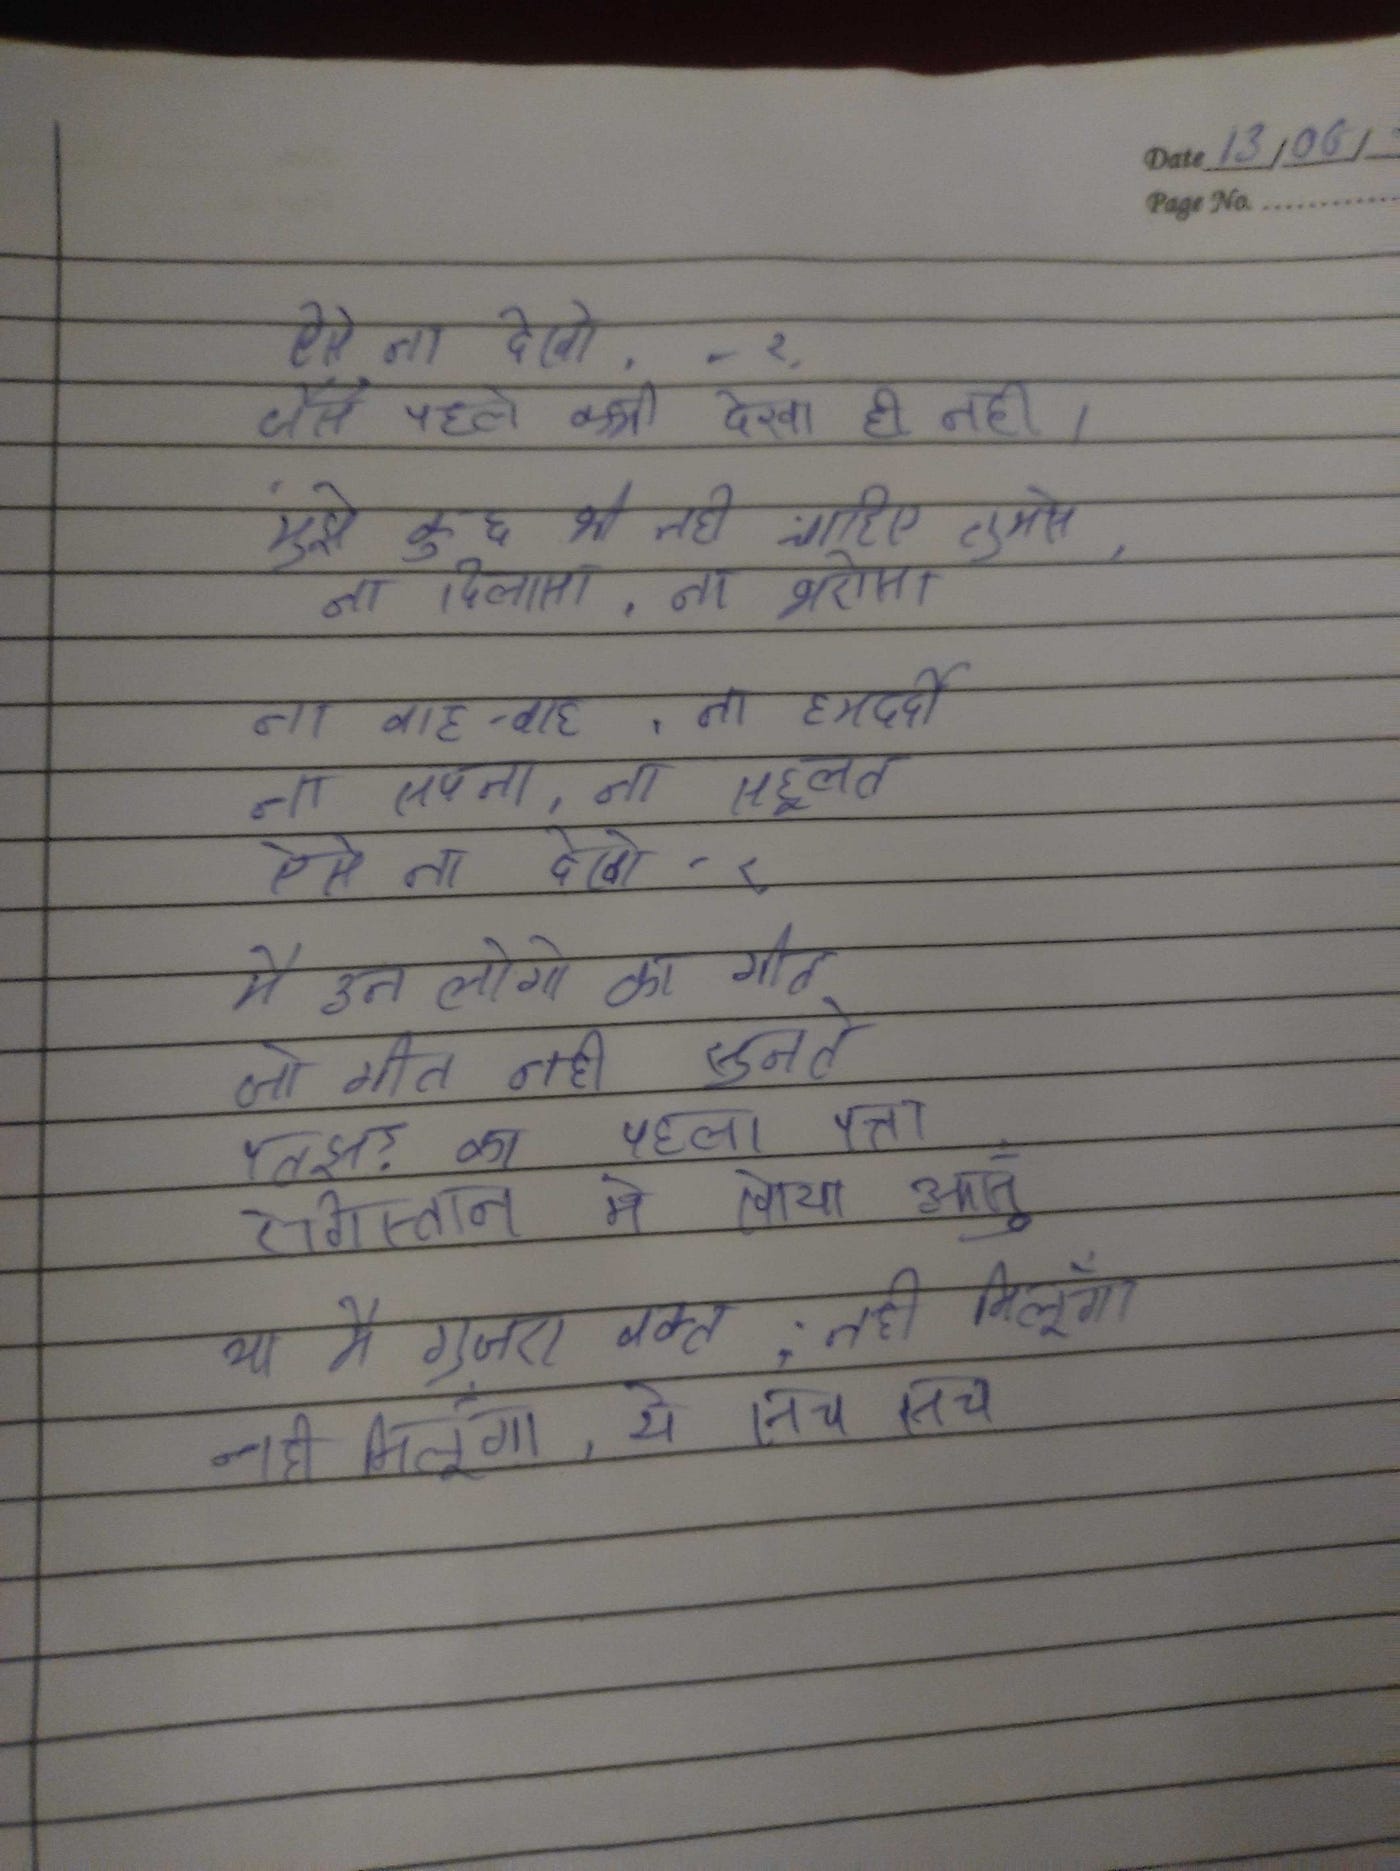 Date 13/06/
Page No.
ऐसे ना देखो, - २,
जैसे पहले कभी देखा ही नही।
मुझे कुछ भी नही चाहिए तुमसे,
ना दिलासा, ना भरोसा
ना वाह-वाह, ना हमदर्दी
ना सपना, ना सहूलत
ऐसे ना देखो - २
मै उन लोगो का गीत
जो गीत नही सुनते
पतझड़ का पहला पत्ता
रेगिस्तान मे खोया आसुँ
या मै गुजरा वक्त, नही मिलूँगा
नही मिलूँगा, ये सच सच